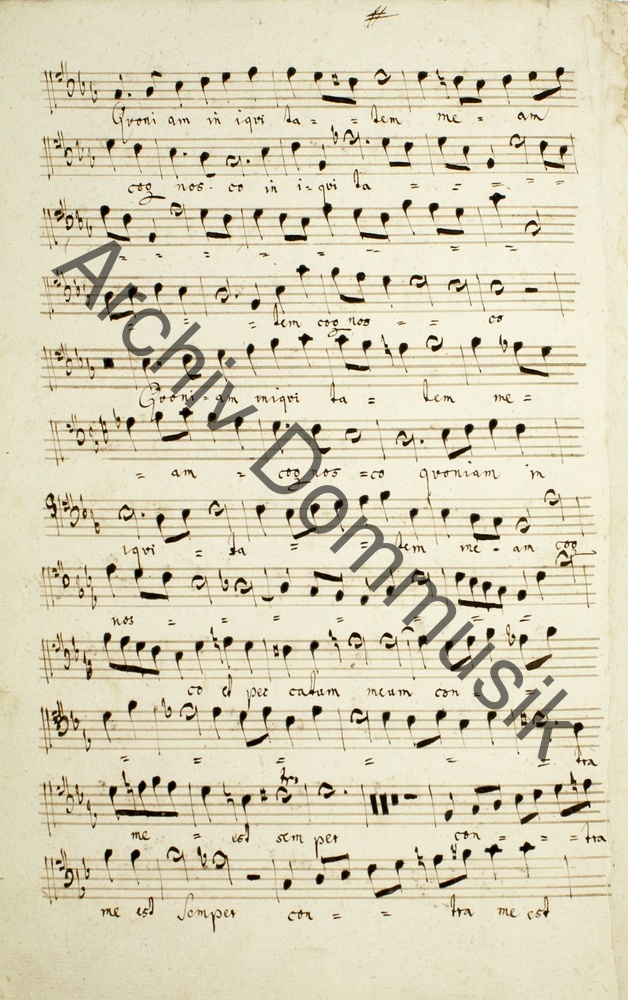 Quoniam in iqui ta - - tem me - am
cog nos - co in i - qui ta - - - - -
- - - - - - -
- - - tem cog nos - - co
Quoni - am iniqui ta - tem me -
- am - cog nos - co quoniam in
iqui - ta - - tem me - am cog
nos - - - - - - -
co et pec catum meum con - -
- - - - - - tra
me - est sem per con - - tra
me est semper con - - tra me est
Archiv Dommusik